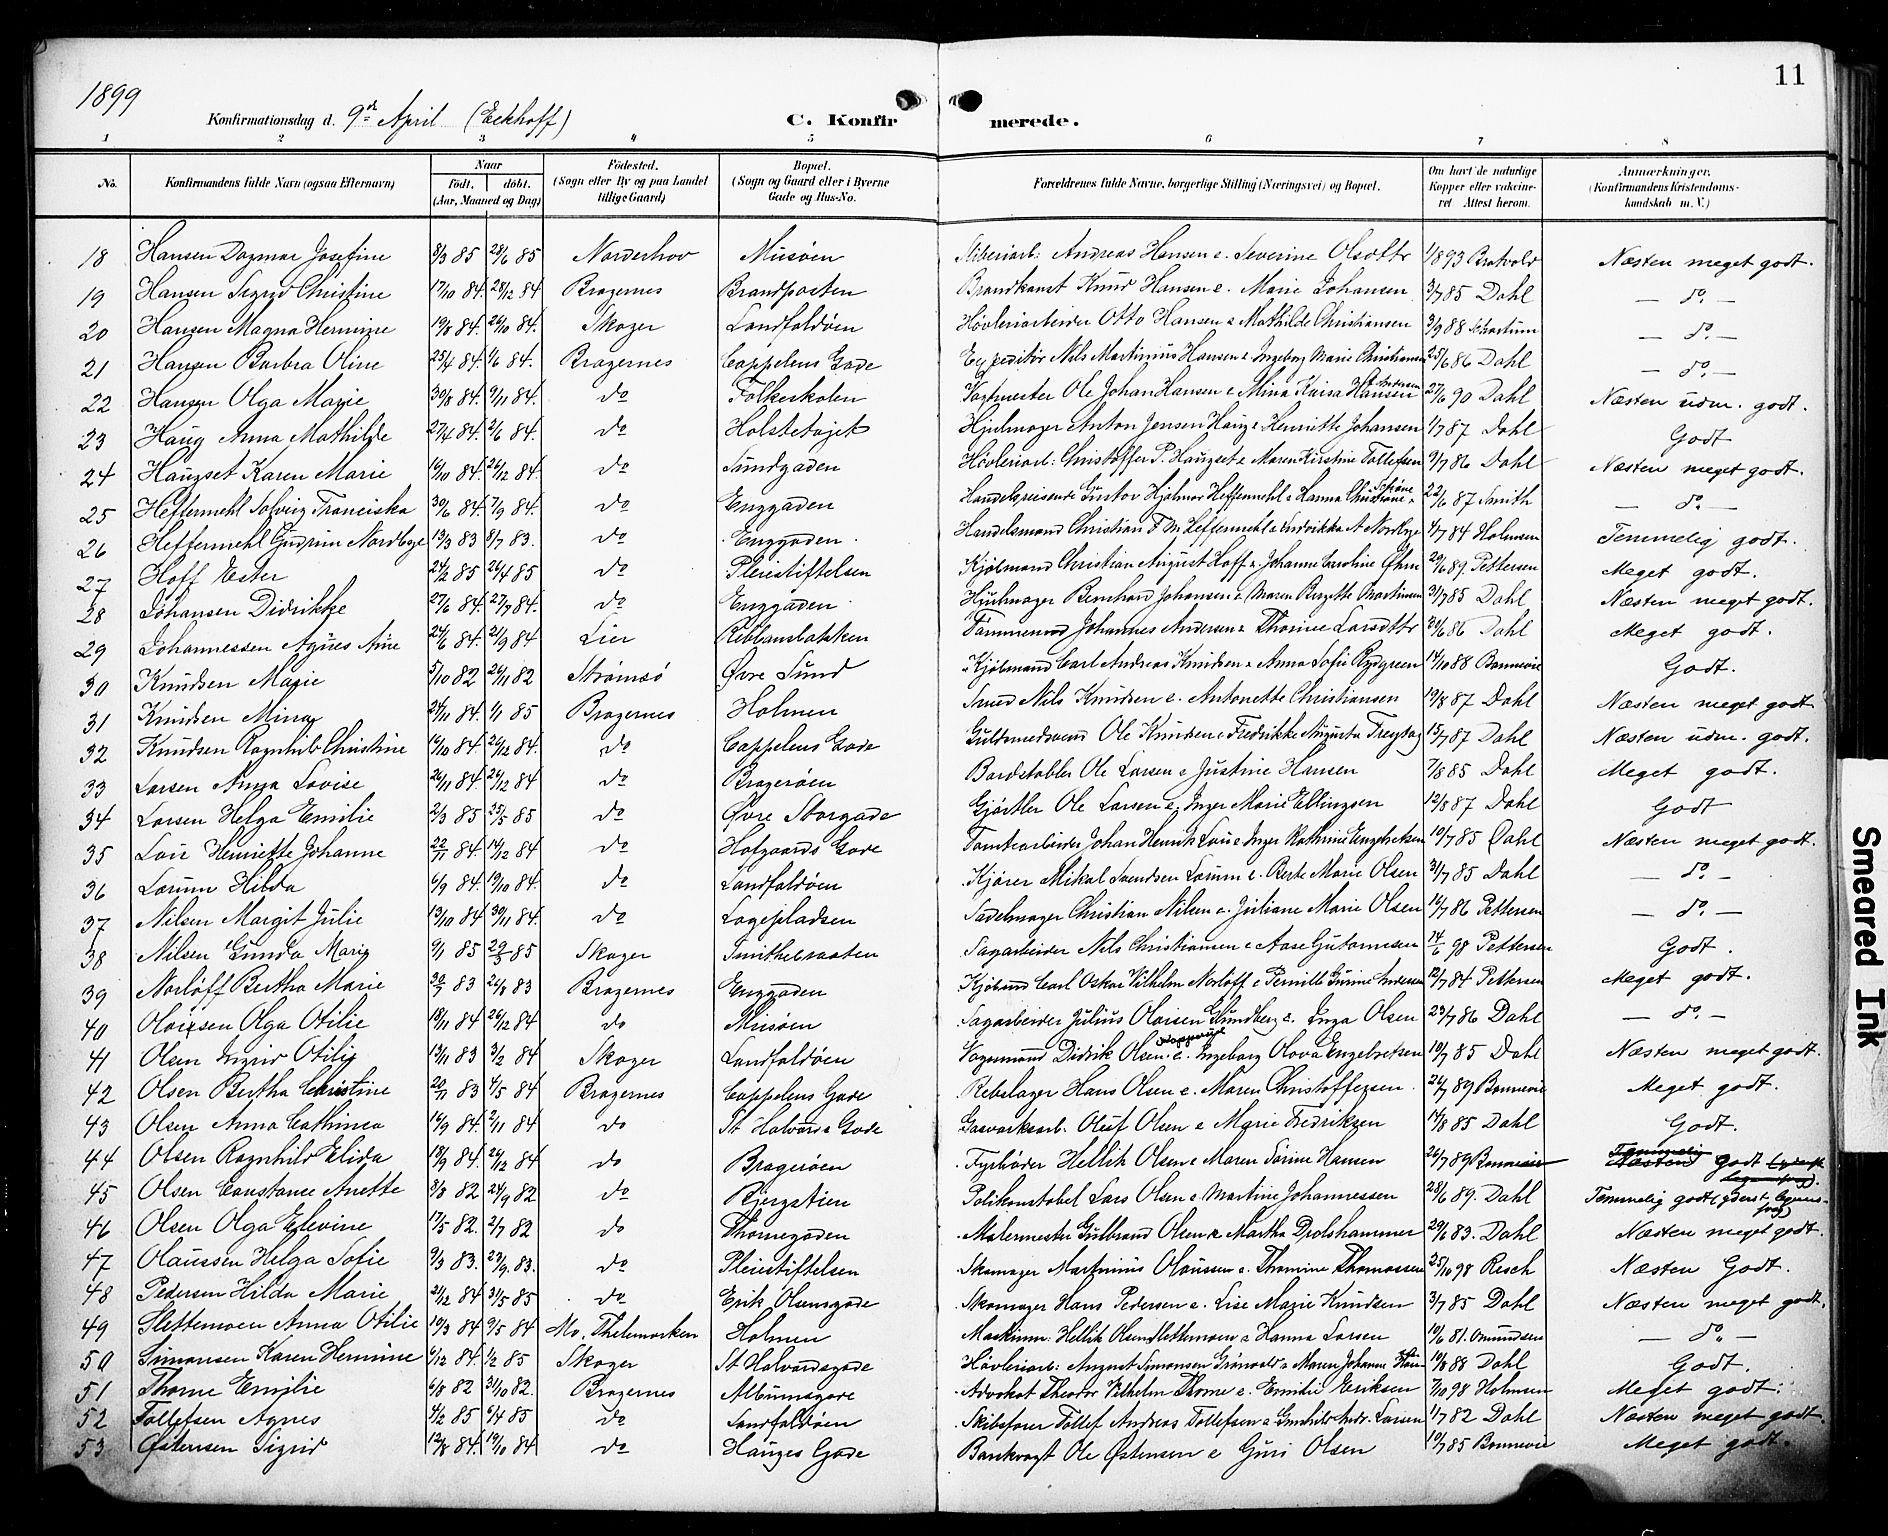 1899
11
Konfirmationsdag d. 9de April (Eckhoff)
C. Konfirmerede.
1 2 3 4 5 6 7 8
No. Konfirmandens fulde Navn (ogsaa Efternavn) Naar født. døbt. (Aar, Maaned og Dag) Fødested. (Sogn eller By og paa Landet tillige Gaard) Bopæl. (Sogn og Gaard eller i Byerne Gade og Hus-No. Forældrenes fulde Navne, borgerlige Stilling (Næringsvei) og Bopæl. Om havt de naturlige Kopper eller vaccineret Attest herom. Anmærkninger. (Konfirmandens Kristendomskundskab m. V.)
18 Hansen Dagmar Josefine 8/3 85 28/6 85 Norderhov Musøen Andreas Hansen e. Severine Olsdttr Næsten meget godt.
19 Hansen Sigrid Christine 17/10 84. 28/12 84 Bragernes Brandposten Brandkonst Knud Hansen e. Marie Johansen 3/7 85 Dahl — do. —
20 Hansen Magna Hermine 19/8 84. 26/10 84. Skoger Landfaldøen Høvleriarbeider Otto Hansen e Mathilde Christiansen 3/9 88 — do. —
21 Hansen Barbra Oline 25/4 84. 1/6 84. Bragernes Cappelens Gade Expeditør Nils Martinius Hansen e Ingeborg Marie Christiansen 25/6 86 Dahl — do. —
22 Hansen Olga Marie 30/8 84. 9/11 84. do Folkeskolen Vagtmester Ole Johan Hansen e Mina Kaisa Hansen f. Andersen 27/6 90 Dahl Næsten udm. godt.
23 Haug Anna Mathilde 27/4 84. 2/6 84. do Holstetøjet Hjulmager Anton Jensen Haug e Henriette Johansen 1/7 87 Dahl Godt
24 Haugset Karen Marie 16/10 84. 26/12 84. do Sundgaden Høvleriarb: Christoffer P. Haugset e Maren Kirstine Tollefsen 9/7 86 Dahl Næsten meget godt.
25 Heffermehl Solveig Franciska 30/6 84. 7/9 84. do Enggaden Handelsreisende Gustav Hjalmar Heffermehl e Hanna Christiane 22/6 87 Smith — do. —
26 Heffermehl Gudrun Nordbye 13/3 83 8/7 83. do Enggaden Handelsmand Christian F M Heffermehl e Fredrikke A Nordbye 4/7 84 Holmsen Temmelig godt.
27 Hoff Ester 24/2 85 26/4 85 do Pleiestiftelsen Kjøbmand Christian August Hoff e. Johanne Caroline Øhrn 20/6 89. Pettersen Meget godt.
28 Johansen Didrikke 27/6 84. 27/7 84. do Enggaden Hjulmager Bernhard Johansen e. Maren Birgitte Martinsen 31/7 85 Dahl Næsten meget godt.
29 Johannessen Agnes Aine 24/6 84. 21/9 84 Lier Ribbansbakken Tømmermd Johannes Andersen e Thorine Larsdttr 20/6 86 Dahl Meget godt.
30 Knudsen Marie 5/10 82 26/11 82 Strømsø Øvre Sund Kjøbmand Carl Andreas Knudsen e Anna Sofie Rydgreen 14/10 88 Bonnevie Godt.
31 Knudsen Mina 24/11 84. 1/1 85 Bragernes Holmen Smed Nils Knudsen e. Antonette Christiansen 19/8 87 Dahl Næsten meget godt
32 Knudsen Ragnhild Christine 16/10 84 26/12 84. do Cappelens Gade Guldsmedsvend Ole Knudsen e Fredrikke Augusta Freytag 15/7 87 Dahl Næsten udm. godt.
33 Larsen Anna Lovise 26/11 84. 26/12 84 do Bragerøen Bordstabler Ole Larsen e Justine Hansen 7/8 85 Dahl Meget godt.
34 Larsen Helga Emilie 2/3 85 25/5 85 do Øvre Storgade Gjørtler Ole Larsen e. Inger Marie Ellingsen 12/8 87 Dahl Godt
35 Lau Henriette Johanne 22/11 84. 14/12 84. do Hofgaards Gade Tomtearbeider Johan Henrik Lau e Inger Kathrine Engebretsen 10/7 85 Dahl Næsten meget godt.
36 Lorum Hilda 6/9 84. 19/10 84. do Landfaldøen Kjører Mikal Svendsen Lorum e. Berte Marie Olsen 31/7 85 Dahl — do. —
37 Nilsen Margit Julie 13/10 84 30/11 84. do Løgepladsen Sadelmager Christian Nilsen e. Juliane Marie Olsen 16/7 86 Pettersen — do. —
38 Nilsen Gunda Marie 9/1 85 29/3 85 Skoger Smithebraaten Sagarbeider Nils Christiansen e Aase Gutormsen 14/6 98 Pettersen Godt.
39 Norløff Bertha Marie 30/7 83 26/8 83 Bragernes Enggaden Kjøbmd Carl Oskar Vilhelm Norløff e Pernille Gurine Andersen 12/7 84 Pettersen Meget godt.
40 Olaisen Olga Otilie 18/11 84 26/12 84 do Musøen Sagarbeider Julius Olaisen Glundberg e. Inga Olsen 23/7 86 Dahl — do. —
41 Olsen Ingrid Otilie 13/11 83 3/2 84 Skoger Landfaldøen Vognmand Didrik Olsen e. Ingeborg Olova Engebretsen 10/7 85 Dahl Næsten meget godt.
42 Olsen Bertha Christine 20/11 83 4/5 84 Bragernes Cappelens Gade Rebslager Hans Olsen e. Maren Christoffersen 26/7 89 Bonnevie Meget godt.
43 Olsen Anna Cathinca 16/9 84. 2/11 84 do St Halvards Gade Gasværksarb. Oluf Olsen e Marie Fredriksen 14/8 85 Dahl Godt.
44 Olsen Ragnhild Elida 18/9 84. 26/12 84 do Bragerøen Fyrbøder Hellik Olsen e Maren Sørine Hansen 26/7 89 Bonnevie Temmelig Næsten godt
45 Olsen Constance Anette 3/8 82 24/9 82 do Bjergstien Politikonstabel Lars Olsen e Martine Johannessen 28/6 89. Dahl Temmelig godt
46 Olsen Olga Elevine 17/5 82. 2/7 82 do Thornegaden Malermester Gulbrand Olsen e Martha Drolshammer 29/6 83. Dahl Næsten meget godt.
47 Olaussen Helga Sofie 9/3 83. 23/9. 83. do Pleiestiftelsen Skomager Martinius Olaussen e. Thomine Thomassen 25/10 98 Resch Næsten Godt.
48 Pedersen Hilda Marie 21/12 84 31/5 85 do Erik Olsensgade Skomager Hans Pedersen e. Lise Marie Knudsen 3/7 85 Dahl Næsten meget godt.
49 Slettemoen Anna Otilie 10/3 84 9/5 84 Mo, Thelemarken Holmen Maskinm: Hellik Olsen Slettemoen e Hanna Larsen 10/6 81. Omundsen — do. —
50 Simonsen Karen Hermine 6/12 84. 1/2 85 Skoger St Halvardsgade Høvleriarb: August Simonsen Grønvold e Maren Johanne 10/8 88 Dahl Godt.
51 Thorne Emilie 6/8 82 31/10 82. Bragernes Albumsgade Advokat Theodor Vilhelm Thorne e. Emilie Eriksen 7/10 98 Holmsen Meget godt.
52 Tollefsen Agnes 4/2 85 6/4 85 do Landfaldøen Skibsfører Tollef Andreas Tollefsen e Gunhild Andr. Larsen 1/7 82 Dahl Næsten meget godt.
53 Østensen Sigrid 12/8 84. 19/10 84 do Hauges Gade Bankvagt Ole Østensen e Guri Olsen 10/7 85 Bonnevie Meget godt.
Smeared Ink